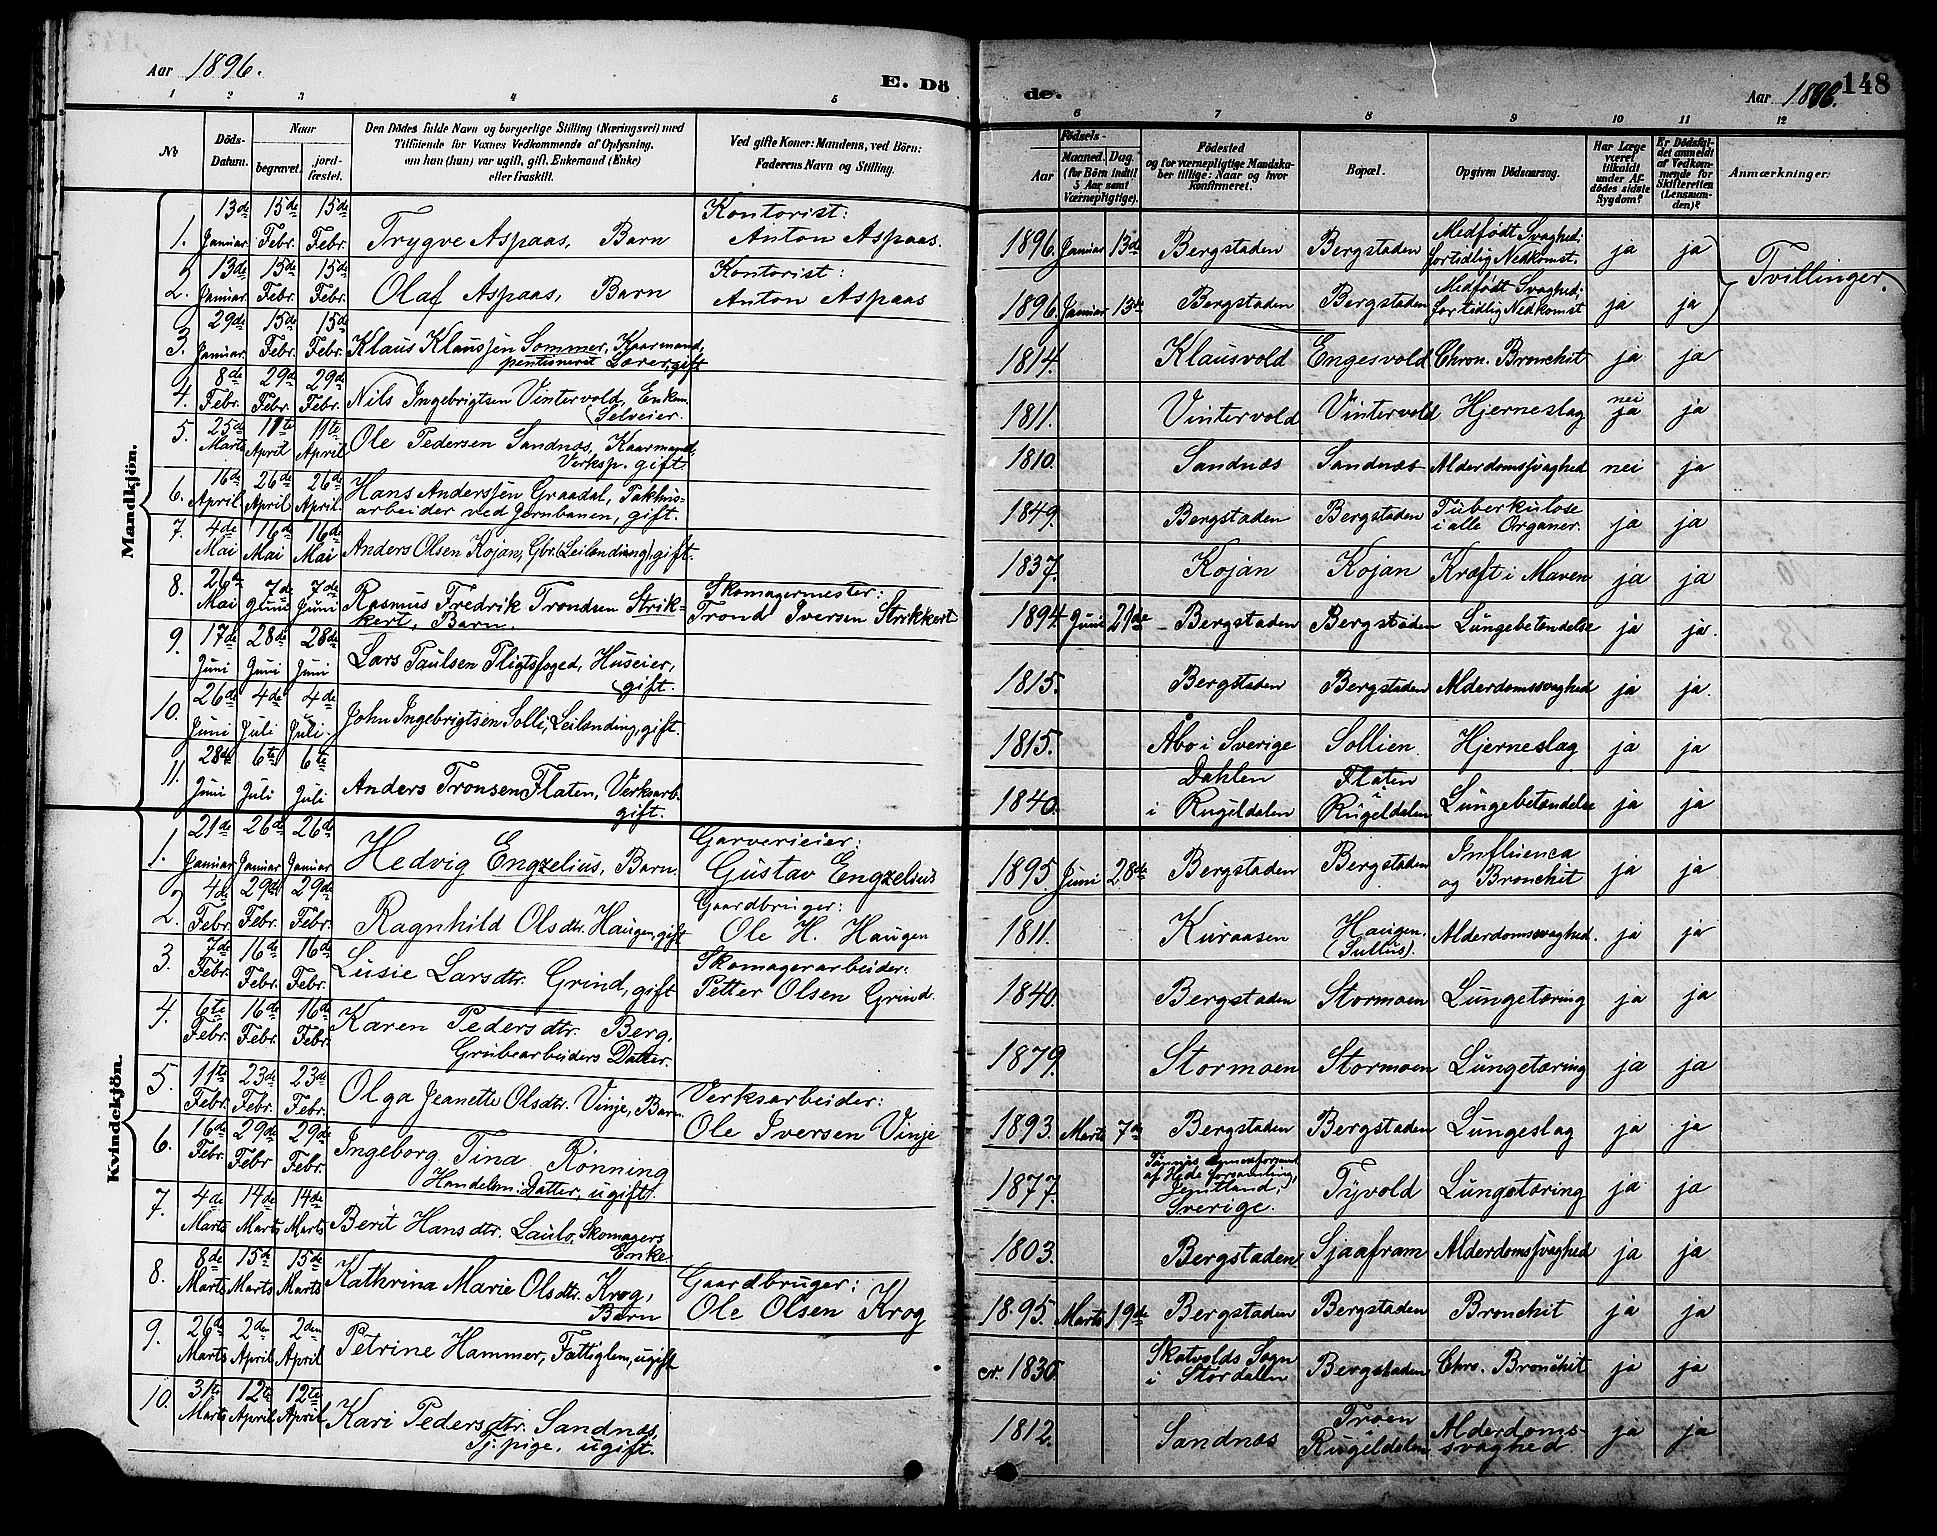 Aar 1896.
E. Dö
de.
Aar 1896.
148
1 2 3 4 5 6 7 8 9 10 11 12
No
Döds-Datum.
Naar
begravet.
jord-fæstet.
Den Dødes fulde Navn og borgerlige Stilling (Næringsvei) med
Tilföiende for Voxnes Vedkommende af Oplysning,
om han (hun) var ugift, gift, Enkemand (Enke)
eller fraskilt.
Ved gifte Koner: Mandens, ved Börn:
Faderens Navn og Stilling.
Födsels-
Aar
Maaned. Dag.
(for Börn indtil
5 Aar samt
Værnepligtige).
Födested
og for værnepligtige Mandska-
ber tillige: Naar og hvor
konfirmeret.
Bopæl.
Opgiven Dödsaarsag.
Har Læge
været
tilkaldt
under Af-
dödes sidste
Sygdom?
Er Dödsfal-
det anmeldt
af Vedkom-
mende for
Skifteretten
(Lensman-
den)?
Anmærkninger:
Mandkjön.
1. 13de Januar 15de Febr. 15de Febr. Trygve Aspaas, Barn Kontorist: Anton Aspaas. 1896. Januar 13de Bergstaden Bergstaden Medfödt Svaghed; for tidlig Nedkomst. ja ja Tvillinger.
2. 13de Januar 15de Febr. 15de Febr. Olaf Aspaas, Barn Kontorist: Anton Aspaas 1896. Januar 13de Bergstaden Bergstaden Medfödt Svaghed; for tidlig Nedkomst ja ja
3. 29de Januar 15de Febr. 15de Febr. Klaus Klaussen Sommer, Kaarmand, pentioneret Lærer, gift 1814. Klausvold Engesvold Chron. Bronchit ja ja
4. 8de Febr. 29de Febr. 29de Febr. Nils Ingebrigtsen Vintervold, Enkem. Selveier. 1811. Vintervold Vintervold Hjerneslag nei ja ja
5. 25de Marts 11te April 11te April Ole Pedersen Sandnæs, Kaarmand, Verksp. gift. 1810. Sandnæs Sandnæs Alderdomssvaghed nei ja
6. 16de April 26de April 26de April. Hans Anderssen Graadal, Pakhus-arbeider ved Jernbanen, gift. 1849. Bergstaden Bergstaden Tuberkulose i alle Organer. ja ja
7. 4de Mai 16de Mai 16de Mai Anders Olsen Kojan, Gbr. (Leilending), gift. 1837. Kojan Kojan Kræft i Maven ja ja
8. 26de Mai 7de Juni 7de Juni Rasmus Fredrik Trondsen Strik-kert, Barn. Skomagermester: Trond Iversen Strikkert 1894 Juni 29de Bergstaden Bergstaden Lungebetændelse ja ja.
9. 17de Juni 28de Juni 28de Juni Lars Paulsen Pligtsfoged, Huseier, gift. 1815. Bergstaden Bergstaden Alderdomssvaghed ja ja.
10. 26de Juni 4de Juli 4de Juli. John Ingebrigtsen Solli, Leilending, gift. 1815. Åbo i Sverige Sollien Hjerneslag ja ja
11. 28de Juni 6te Juli 6te Juli Anders Tronsen Flaten, Verksarb. gift. 1840. Dahlen i Rugeldalen Flaten i Rugeldalen Lungebetændelse ja ja
Kvindekjön.
1. 21de Januar 26de Januar 26de Januar Hedvig Engzelius, Barn. Garverieier: Gustav Engzelius 1895. Juni 28de Bergstaden Bergstaden Influenca og Bronchit ja ja
2. 4de Febr. 29de Febr. 29de Febr. Ragnhild Olsdtr. Haugen, gift Gaardbruger: Ole H. Haugen 1811. Kuraasen Haugen. (Sullus). Alderdomssvaghed. ja ja
3. 7de Febr. 16de Febr. 16de Febr. Lusie Larsdtr. Grind, gift Skomagerarbeider: Petter Olsen Grind. 1840. Bergstaden Stormoen Lungetæring ja ja
4. 6te Febr. 16de Febr. 16de Febr. Karen Pedersdtr. Berg, Grubearbeiders Datter. 1879. Stormoen Stormoen Lungetæring ja ja
5. 11te Febr. 23de Febr. 23de Febr. Olga Jeanette Olsdtr. Vinje, Barn Verksarbeider: Ole Iversen Vinje 1893. Marts 7de Bergstaden Bergstaden Lungeslag ja ja
6. 16de Febr. 29de Febr 29de Febr. Ingeborg Tina Rønning Handelsm: Datter, ugift. 1877. af Hede forsamling, Jemtland, Sverige. Tyvold Lungetæring ja ja
7. 4de Marts 14de Marts 14de Marts Berit Hansdtr. Laulo, Skomagers Enke 1803. Bergstaden Sjaafram Alderdomssvaghed ja ja
8. 8de Marts 15de Marts 15de Marts Kathrina Marie Olsdtr. Krog, Barn Gaardbruger: Ole Olsen Krog 1895. Marts 19de Bergstaden Bergstaden Bronchit ja ja
9. 26de Marts 2den April 2den April Petrine Hammer, Fattiglem, ugift cr. 1830 Skatvolds Sogn i Stordalen Bergstaden Chro. Bronchit ja ja
10. 31te Marts 12te April 12te April Kari Pedersdtr. Sandnæs, Tj. pige, ugift. 1812. Sandnæs Troen Rugeldalen Alderdoms-svaghed ja ja